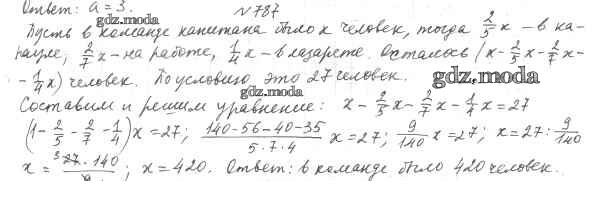 Ответ: a = 3. №787
gdz.moda
Пусть в команде капитана было x человек, тогда 2/5 x – в ка-
рауле, 2/7 x – на работе, 1/4 x – в лазарете. Осталось (x - 2/5 x - 2/7 x -
- 1/4 x) человек. По условию, это 27 человек.
gdz.moda
gdz.moda
Составим и решим уравнение: x - 2/5 x - 2/7 x - 1/4 x = 27
(1 - 2/5 - 2/7 - 1/4) x = 27; (140-56-40-35)/(5·7·4) x = 27; 9/140 x = 27; x = 27 : 9/140
x = 3 27·140/9; x = 420. Ответ: в команде было 420 человек.